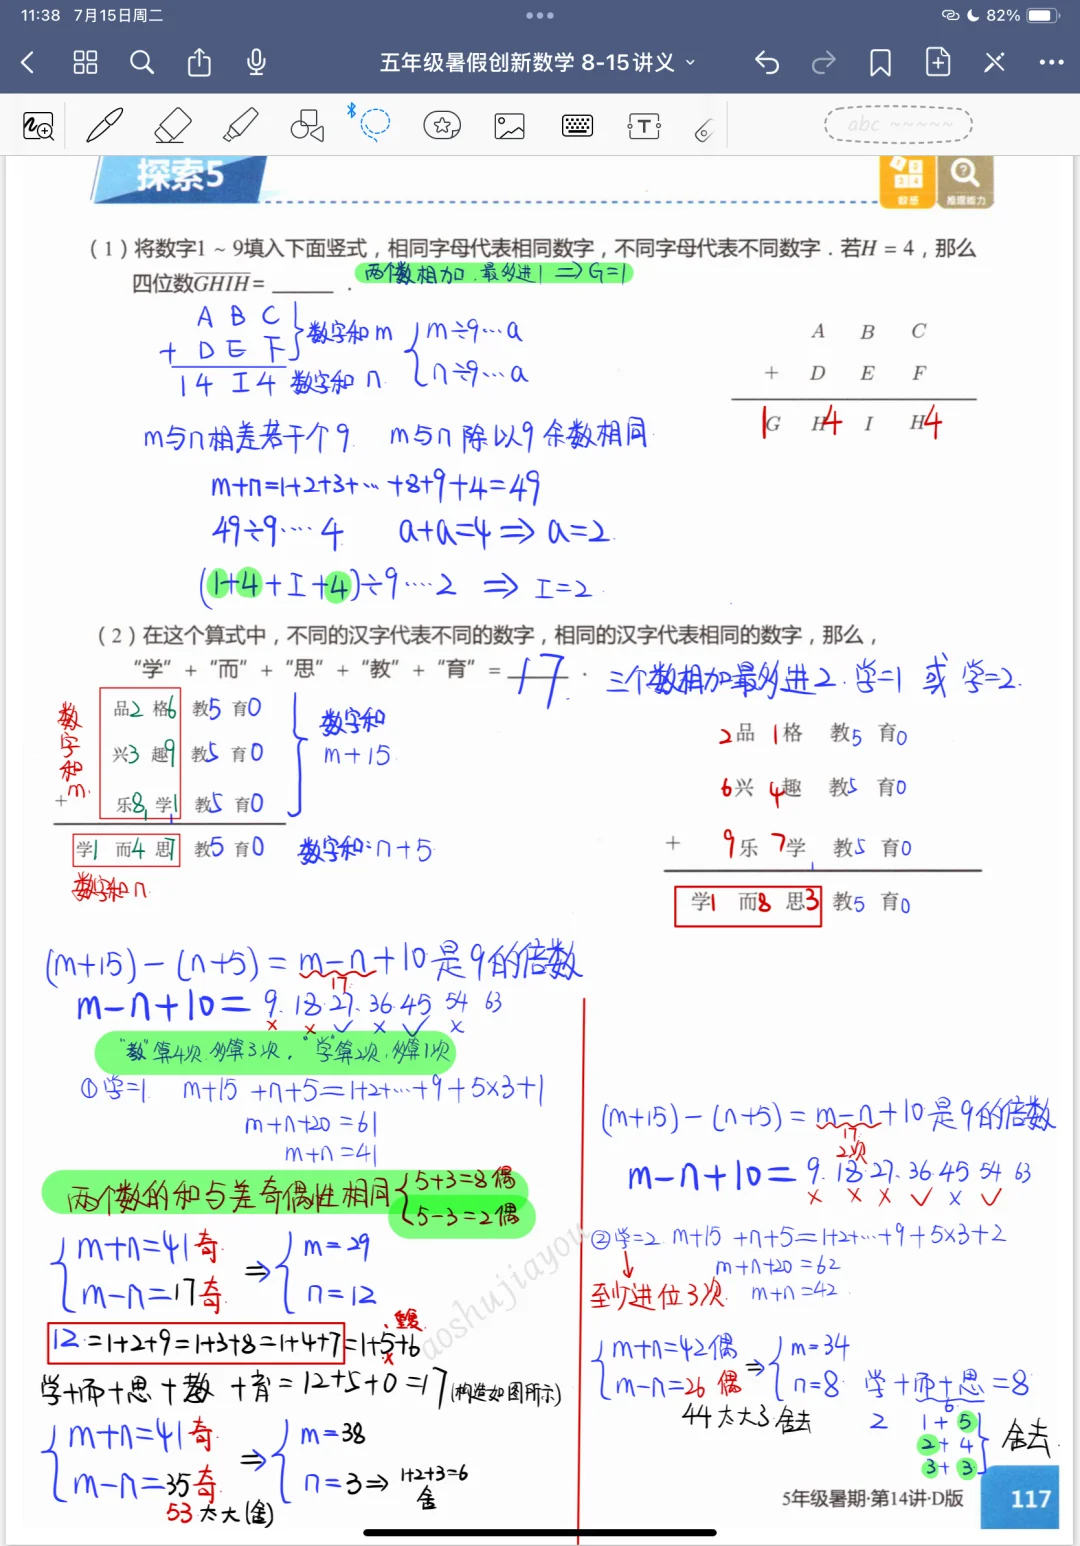 11:38 7月15日周二
82%
五年级暑假创新数学 8-15讲义
abc ~~~~~
探索5
数感
推理能力
(1)将数字1 ~ 9填入下面竖式，相同字母代表相同数字，不同字母代表不同数字．若H = 4，那么
四位数GHIH = ______ ．
两个数相加．最多进1 ⇒ G=1
A B C
+ D E F
1 4 I 4
数字和 m
数字和 n
m÷9…a
n÷9…a
A B C
+ D E F
1G H4 I H4
m与n相差若干个9. m与n除以9余数相同
m+n=1+2+3+…+8+9+4=49
49÷9…4 a+a=4 ⇒ a=2
(1+4+I+4)÷9…2 ⇒ I=2
(2)在这个算式中，不同的汉字代表不同的数字，相同的汉字代表相同的数字，那么，
“学”+“而”+“思”+“教”+“育”= 17 ．
三个数相加最多进2. 学=1 或 学=2.
数字和m
品2 格6 教5 育0
兴3 趣9 教5 育0
+ 乐8 学1 教5 育0
学1 而4 思7 教5 育0
数字和
m+15
数字和：n+5
数字和n
2品 1格 教5 育0
6兴 4趣 教5 育0
+ 9乐 7学 教5 育0
学1 而8 思3 教5 育0
(m+15)-(n+5)=m-n+10是9的倍数
17
m-n+10= 9. 18. 27. 36. 45 54 63
× × ✓ × ✓ ×
“教”算4次.多算3次，“学”算2次.多算1次
①学=1. m+15+n+5=1+2+…+9+5×3+1
m+n+20=61
m+n=41
两个数的和与差奇偶性相同
5+3=8偶
5-3=2偶
m+n=41奇
m-n=17奇
⇒
m=29
n=12
12=1+2+9=1+3+8=1+4+7=1+5+6
重复
×
学+而+思+教+育=12+5+0=17(构造如图所示)
m+n=41奇
m-n=35奇
⇒
m=38
n=3 ⇒ 1+2+3=6
舍
53太大(舍)
(m+15)-(n+5)=m-n+10是9的倍数
17
2次
m-n+10= 9. 18 27. 36. 45 54 63
× × × ✓ × ✓
②学=2. m+15+n+5=1+2+…+9+5×3+2
至少进位3次.
m+n+20=62
m+n=42
m+n=42偶
m-n=26偶
⇒
m=34
n=8
学+而+思=8
44太大了舍去
2
6
1+5
2+4
3+3
舍去
aoshujiayou
5年级暑期·第14讲·D版
117